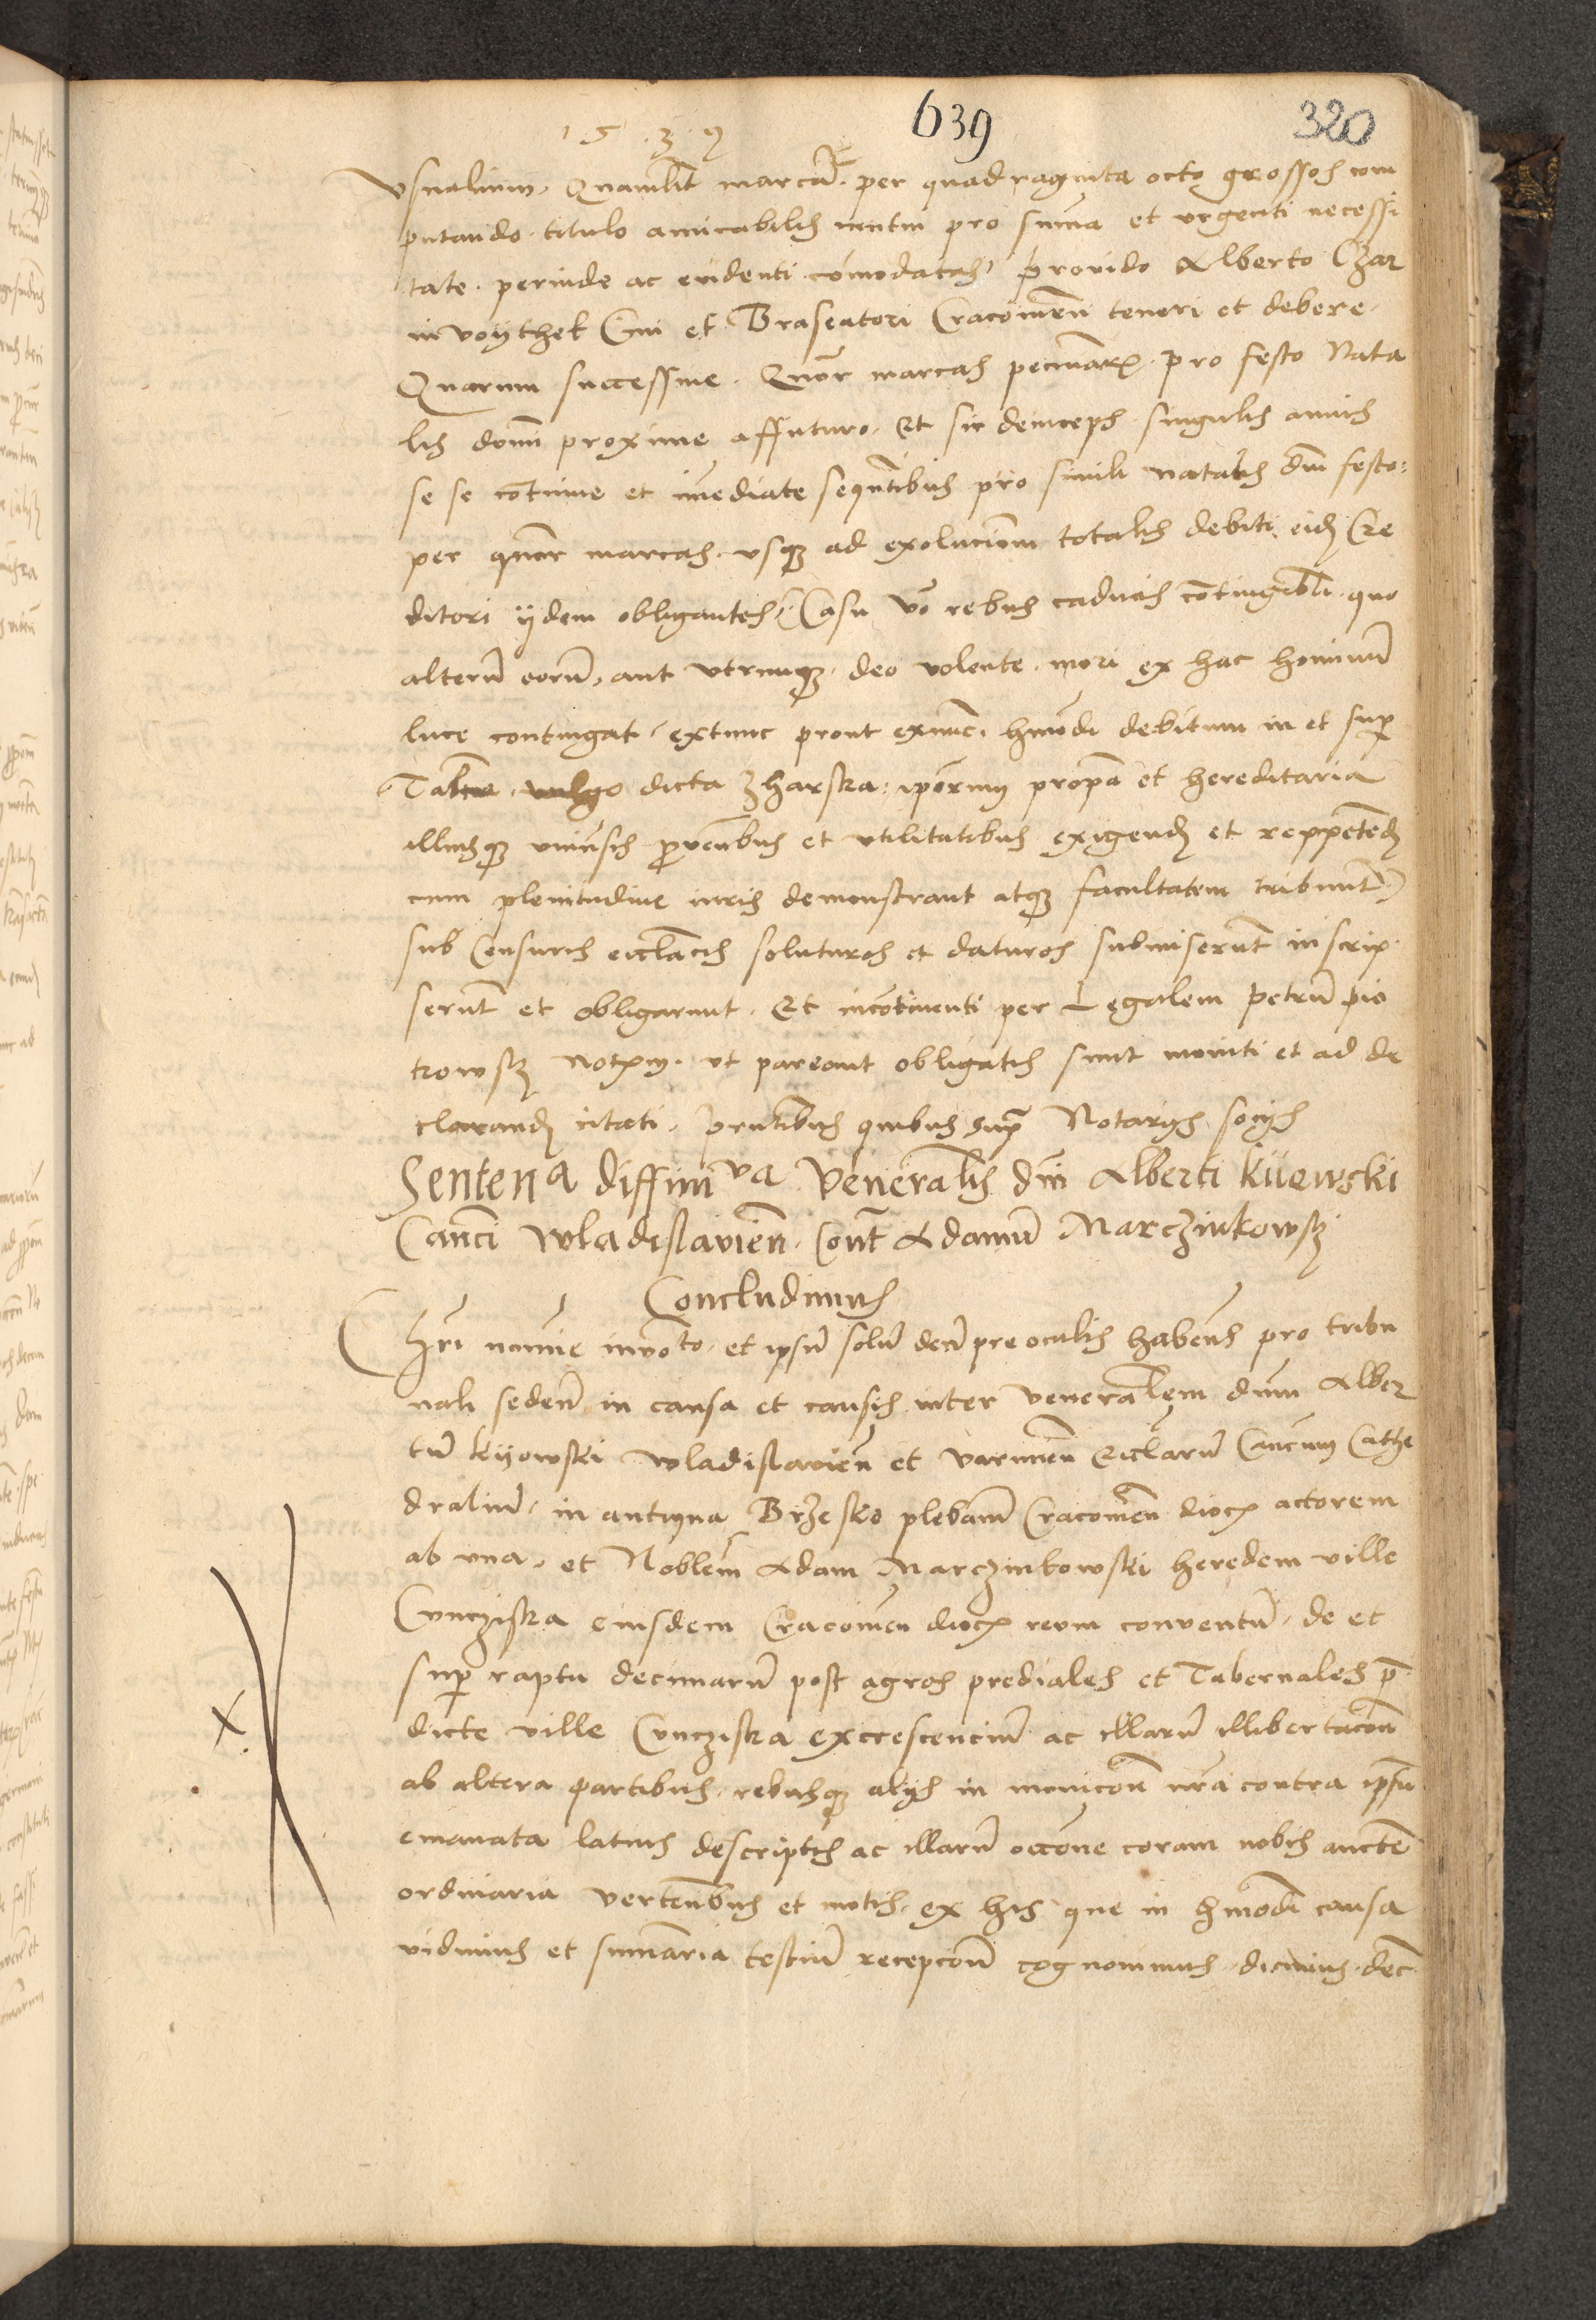 639
320
1 5 3 9
vsualium. Quamlibet marcam per quadraginta octo grossos com
putando titulo amicabilis mutui pro summa et vrgenti necessi
tate perinde ac euidenti comodatas prouido Alberto Czar
Ciui et Braseatori Cracouien teneri et debere
Quarum successiue Quor marcas pecuniarum pro festo Nata
lis domini proxime affuturo. Et sic deinceps singulis annis
se se continue et imediate sequentibus pro simili natalis dni festo
per quor marcas vsque ad exolucionem totalis debiti eidem Cre
ditori ijdem obligantes Casu vero rebus caducis contingibili quo
alterum eorum aut vtrumque deo volente mori ex hac hominum
luce contingat extunc prout exnunc hmodi debitum in et super
Taberna vulgo dicta ipsorum propria et hereditaria
illiusque vniuersis prouentibus et vtilitatibus exigendi et reppetendi
cum plenitudine iuris demonstrant atque facultatem tribuunt
sub Censuris ecclasticis soluturos et daturos submiserunt inscrip
serunt et obligarunt. Et incontinenti per Legalem petrum pio
trowski notarium vt pareant obligatis sunt moniti et ad de
clarandum citati. Presentibus quibus supra Notarijs socijs
Sentena diffinitiua Venerabilis dni Alberti kiiewski
Canci wladislauien. Cont Adamum Marczinkowski
Concludimus
Christi nomine inuocato et ipsum solum deum pre oculis habentes pro tribu
nali seden in causa et causis inter Venerabilem dnum Alber
tum kyowski wladislauien et varmien Ecclarum Canonicum Cathe
dralium in antiqua Brzesko plebanum Cracouien dioc actorem
ab vna et Nobilem Adam Marczinkowski heredem ville
Cunczisska eiusdem Cracouien dioc reum conuentum de et
super raptu decimarum post agros prediales et Tabernales pre
dicte ville Cunczisska excrescencium ac illarum illibertacione
ab altera partibus rebusque alijs in monicione nra contra ipsum
emanata latius descriptis ac illarum occone coram nobis aucte
ordinaria vertentibus et motis ex his que in hmodi causa
vidimus et sumaria testium recepcone cognouimus dicimus dec